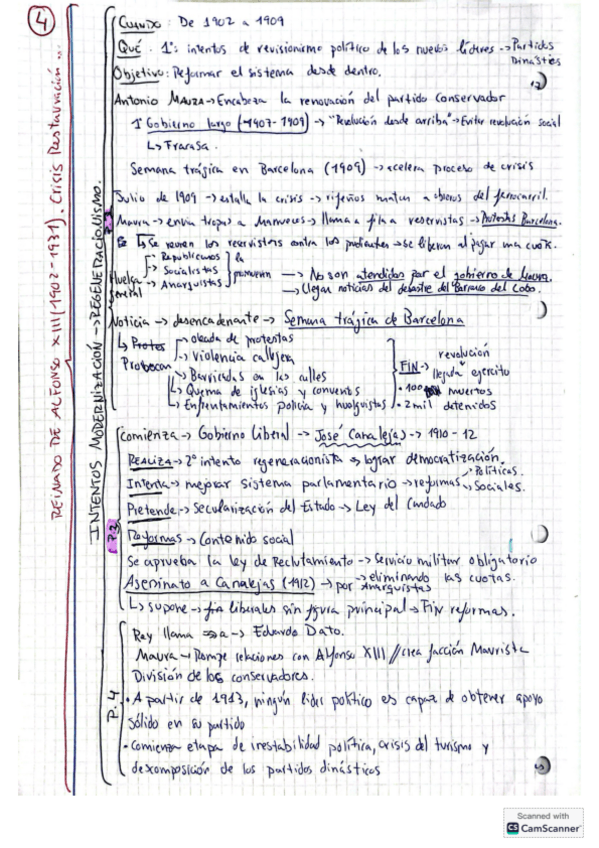 4
REINADO DE ALFONSO XIII (1902-1931). Crisis Restauración...
INTENTOS MODERNIZACIÓN → REGENERACIONISMO.
Cuando: De 1902 a 1909
Qué. 1ºs intentos de revisionismo político de los nuevos líderes → Partidos Dinásticos
Objetivo: Reformar el sistema desde dentro.
Antonio Maura → Encabeza la renovación del partido conservador
1º Gobierno largo (1907-1909) → "Revolución desde arriba" → Evitar revolución social
↳ Fracasa.
Semana trágica en Barcelona (1909) → acelera proceso de crisis
Julio de 1909 → estalla la crisis → rifeños matan a obreros del ferrocarril.
Maura → envía tropas a Marruecos → llama a filas reservistas → Protestas Barcelona.
↳ Se reunen los reservistas contra los pudientes → se liberan al pagar una cuota.
Huelga general
→ Republicanos
→ Socialistas
→ Anarquistas
promueven → No son atendidas por el gobierno de Maura.
→ Llegan noticias del desastre del Barranco del Lobo.
Noticia → desencadenante → Semana trágica de Barcelona
↳ Protes
Provocan
→ oleada de protestas
→ Violencia callejera
→ Barricadas en las calles
→ Quema de iglesias y conventos
→ Enfrentamientos policía y huelguistas
FIN → revolución
llegada ejercito
• 100 muertos
• 2 mil detenidos
P.3
Comienza → Gobierno Liberal → José Canalejas → 1910-12
REALIZA → 2º intento regeneracionista → lograr democratización.
Intenta → mejorar sistema parlamentario → reformas → Políticas.
→ Sociales.
Pretende → Secularización del Estado → Ley del Candado
Reformas → Contenido social
Se aprueba la ley de Reclutamiento → Servicio militar obligatorio
→ eliminando las cuotas.
Aseminato a Canalejas (1912) → por Anarquistas
↳ supone → fin liberales sin figura principal → Fin reformas.
P.4
Rey llama → a → Eduardo Dato.
Maura → Rompe relaciones con Alfonso XIII // crea facción Maurista
División de los conservadores.
• A partir de 1913, ningún líder político es capaz de obtener apoyo
sólido en su partido
• Comienza etapa de inestabilidad política, crisis del turismo y
descomposición de los partidos dinásticos
Scanned with
CS CamScanner